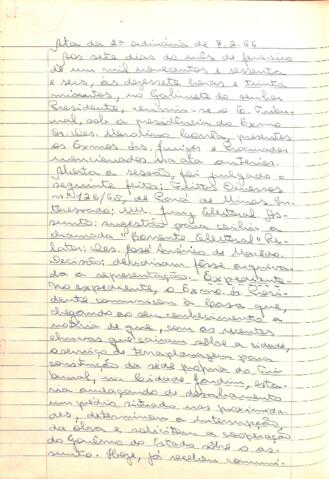 Ata da 2ª ordinária de 7.2.66
Aos sete dias do mês de fevereiro
de um mil novecentos e sessenta
e seis, às dezessete horas e trinta
minutos, no Gabinete do Senhor
Presidente, reuniu-se o E. Tribu-
nal, sob a presidência do Exmo
Sr. Des. Corrêa, presentes
os Exmos. Srs. Juízes e Procurador
mencionados na ata anterior.
Aberta a sessão, foi julgado o
seguinte feito: Feitos Diversos
nº 126/65, de Pará de Minas. In-
teressado: MM. Juiz Eleitoral. As-
sunto: sugestão para coibir a
chamada "Corrente Eleitoral". Re-
lator: Des. José Américo de Macêdo.
Decisão: deliberaram fôsse arquiva-
da a representação. Expediente:
no expediente, o Exmo. Sr. Presi-
dente comunicou à Casa que,
chegando ao seu conhecimento a
notícia de que, com as recentes
chuvas que caíram sôbre a cidade,
o serviço de terraplanagem para
construção da sede própria do Tri-
bunal, na Cidade Jardim, esta-
ria ameaçando de desabamento
um prédio situado nas proximida-
des, determinou a interrupção
da obra e solicitou a cooperação
do Govêrno do Estado sôbre o as-
sunto. Hoje, já recebeu comuni-